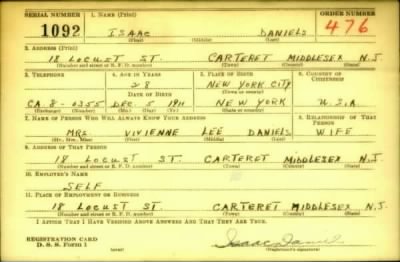 SERIAL NUMBER 1. NAME (Print) ORDER NUMBER
1092 ISAAC DANIELS 476
(First) (Middle) (Last)
2. ADDRESS (Print)
18 LOCUST ST. CARTERET MIDDLESEX N.J.
(Number and street or R. F. D. number) (Town) (County) (State)
3. TELEPHONE 4. AGE IN YEARS 5. PLACE OF BIRTH 6. COUNTRY OF CITIZENSHIP
28 NEW YORK CITY
DATE OF BIRTH (Town or county)
CA. 8-0355 DEC. 5 1911 NEW YORK U.S.A
(Exchange) (Number) (Mo.) (Day) (Yr.) (State or country)
7. NAME OF PERSON WHO WILL ALWAYS KNOW YOUR ADDRESS 8. RELATIONSHIP OF THAT PERSON
MRS VIVIENNE LEE DANIELS WIFE
(Mr., Mrs., Miss) (First) (Middle) (Last)
9. ADDRESS OF THAT PERSON
18 LOCUST ST. CARTERET MIDDLESEX N.J.
(Number and street or R. F. D. number) (Town) (County) (State)
10. EMPLOYER'S NAME
SELF
11. PLACE OF EMPLOYMENT OR BUSINESS
18 LOCUST ST. CARTERET MIDDLESEX N.J.
(Number and street or R. F. D. number) (Town) (County) (State)
I AFFIRM THAT I HAVE VERIFIED ABOVE ANSWERS AND THAT THEY ARE TRUE.
REGISTRATION CARD
D. S. S. Form 1 (over) Isaac Daniels
(Registrant's signature)